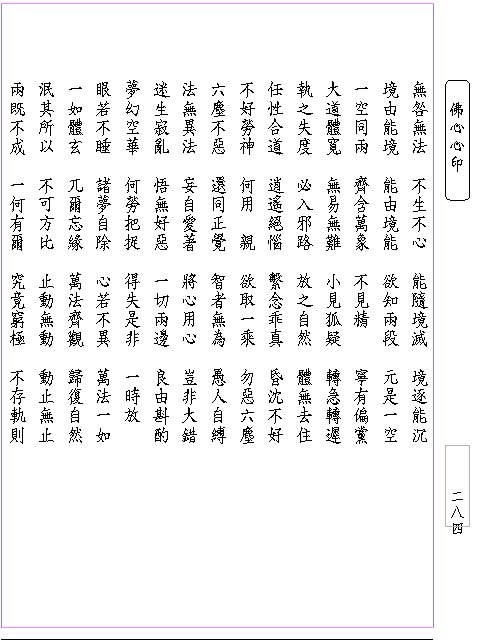 佛心心印
無咎無法　不生不心　能隨境滅　境逐能沉
境由能境　能由境能　欲知兩段　元是一空
一空同兩　齊含萬象　不見精　寧有偏黨
大道體寬　無易無難　小見狐疑　轉急轉遲
執之失度　必入邪路　放之自然　體無去住
任性合道　逍遙絕惱　繫念乖真　昏沈不好
不好勞神　何用　親　欲取一乘　勿惡六塵
六塵不惡　還同正覺　智者無為　愚人自縛
法無異法　妄自愛著　將心用心　豈非大錯
迷生寂亂　悟無好惡　一切兩邊　良由斟酌
夢幻空華　何勞把捉　得失是非　一時放
眼若不睡　諸夢自除　心若不異　萬法一如
一如體玄　兀爾忘緣　萬法齊觀　歸復自然
泯其所以　不可方比　止動無動　動止無止
兩既不成　一何有爾　究竟窮極　不存軌則
二八四